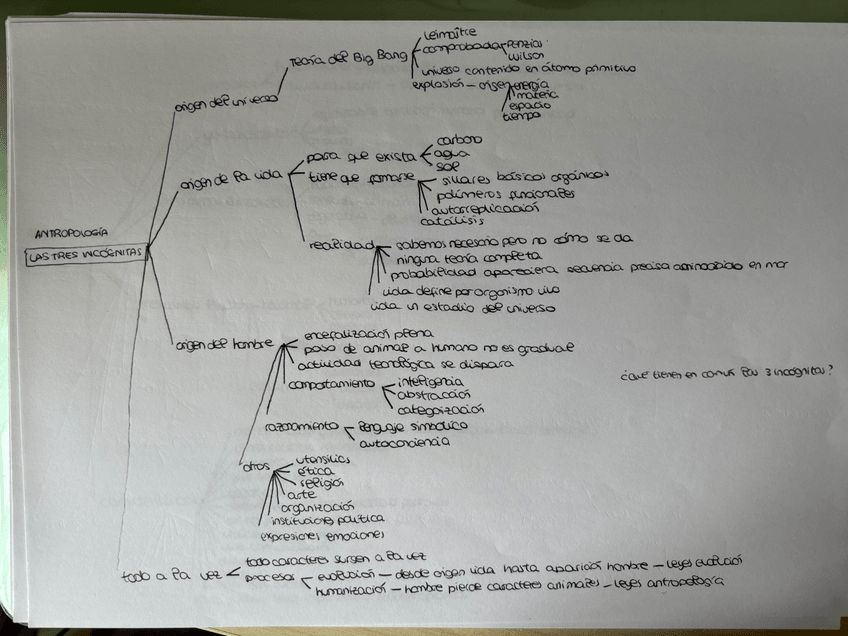 Lemaître
Teoría del Big Bang
comprobada Penzias
Wilson
universo contenido en átomo primitivo
explosión — origen energía
materia
espacio
tiempo
origen del universo
carbono
para que exista
agua
sol
origen de la vida
tiene que formarse
sillares básicos orgánicos
polímeros funcionales
autorreplicación
catálisis
ANTROPOLOGÍA
LAS TRES INCÓGNITAS
realidad
sabemos necesario pero no cómo se da
ninguna teoría completa
probabilidad apareciera secuencia precisa aminoácido en mar
vida define por organismo vivo
vida un estadio del universo
origen del hombre
encefalización plena
paso de animal a humano no es gradual
actividad tecnológica se dispara
comportamiento
inteligencia
abstracción
categorización
¿qué tienen en común las 3 incógnitas?
razonamiento
lenguaje simbólico
autoconciencia
otros
utensilios
ética
religión
arte
organización
instituciones política
expresiones emociones
todo a la vez
todo caracteres surgen a la vez
procesos
evolución — desde origen vida hasta aparición hombre — leyes evolución
humanización — hombre pierde caracteres animales — leyes antropología